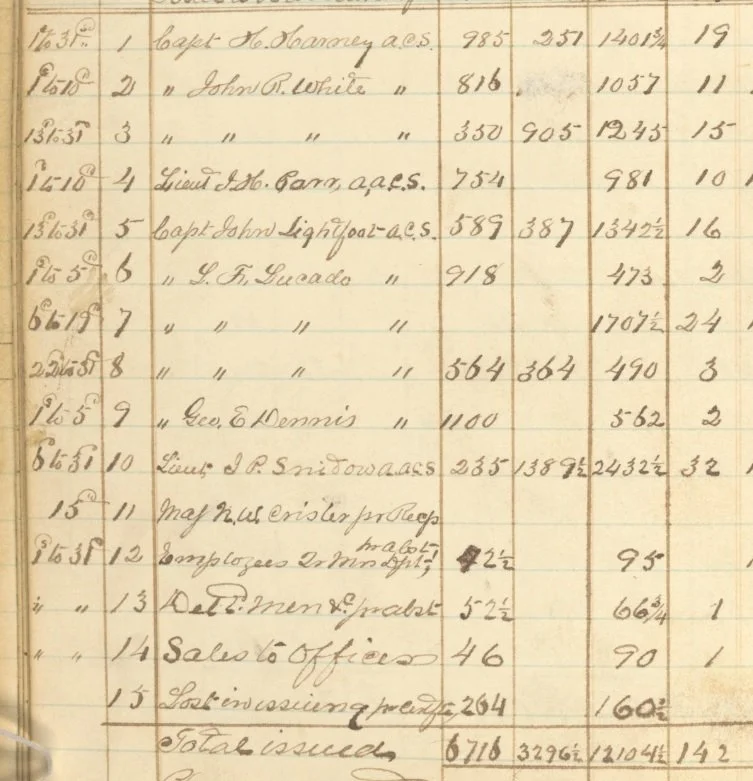 1st to 31st 1 Capt H. Harney a.c.s. 985 251 1401¾ 19
1st to 10th 2 " John R. White " 816 1057 11
13th to 31st 3 " " " " 350 905 1245 15
1st to 10th 4 Lieut J. H. Parr, a.a.c.s. 754 981 10
13th to 31st 5 Capt John Lightfoot a.c.s. 589 387 1342½ 16
1st to 5th 6 " L. F. Lucado " 918 473 2
6th to 19th 7 " " " " 1707½ 24
to 31st 8 " " " " 564 364 490 3
1st to 5th 9 " Geo. E Dennis " 1100 562 2
6th to 31st 10 Lieut J P. Snidow a.a.c.s 235 1389½ 2432½ 32
15th 11 Maj N. W. Crisler pr Recp
1st to 31st 12 Employees Qr Mrs Dpt, pr abst 42½ 95
" " 13 Det'd. Men &c. pr abst 52½ 66¾ 1
" " 14 Sales to Officers 46 90 1
15 Lost in issuing pr 264 160½
Total issued 6716 3296½ 12104½ 142